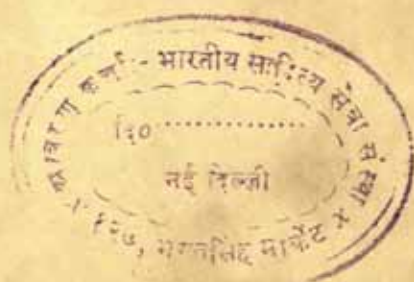 वितरण कर्त्ता - भारतीय साहित्य सेवा संस्था x
दि० ..................
नई दिल्ली
१२७, भगतसिंह मार्केट x